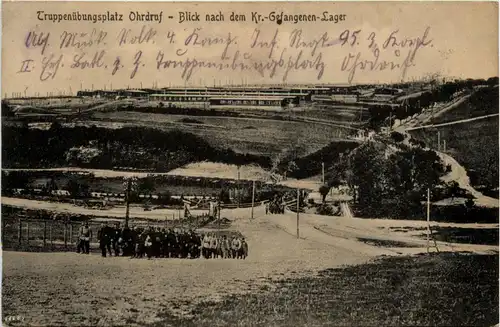 Truppenübungsplatz Ohrdruf - Blick nach dem Kr.-Gefangenen-Lager
Abs. Musk. Volk 4. Komp. Inf. Regt. 95. 3. Korpl.
II. Batl. z. Z. Truppenübungsplatz Ohrdruf